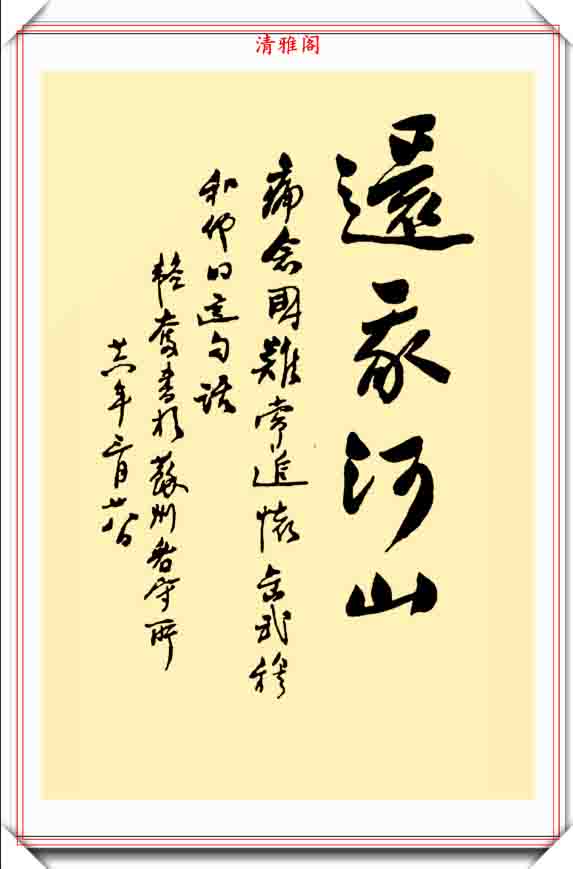 清雅阁
還我河山
痛念國難常追懷岳武穆
和仰口這句話
韜奮書於蘇州看守所
廿六年三月廿八日